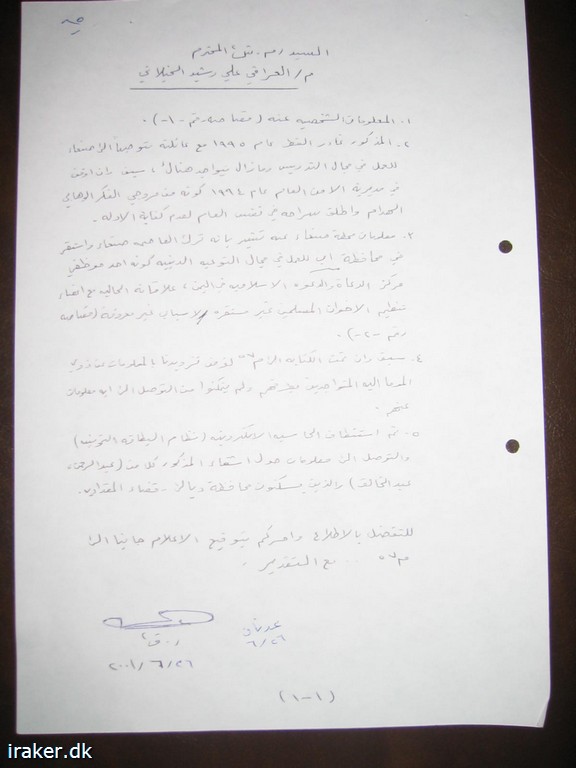 السيد م.ش٤ المحترم
م/ العراقي علي رشيد
١. المعلومات الشخصية عنه (قصاصة رقم -١-).
٢. المذكور غادر القطر عام ١٩٩٥ مع عائلته متوجهاً الى صنعاء
للعمل في مجال التدريس ومازال متواجد هناك، سبق وان اوقف
في مديرية الامن العام عام ١٩٩٤ كونه من مروجي الفكر الوهابي
الهدام واطلق سراحه في نفس العام لعدم كفاية الادلة.
٣. معلومات محطة صنعاء عنه تشير بانه ترك العاصمة صنعاء واستقر
في محافظة اب للعمل في مجال التوعية الدينية كونه احد موظفي
مركز الدعاة والدعوة الاسلامية في اليمن، علاقاته الحالية مع اعضاء
تنظيم الاخوان المسلمين غير مستقرة لاسباب غير معروفة (قصاصة
رقم -٢-).
٤. سبق وان تمت الكتابة الى م٥٦ لتزويدنا بالمعلومات عن ذوي
المومأ اليه المتواجدين ولم يتمكنوا من التوصل الى اية معلومات
عنهم.
٥. تم استنطاق الحاسبة الالكترونية (نظام البطاقة التموينية)
والتوصل الى معلومات حول اشقاء المذكور كل من (عبدالرحمن،
عبدالخالق) والذين يسكنون محافظة ديالى - قضاء المقدادية.
للتفضل بالاطلاع وامركم بتوقيع الاعلام جانباً الى
م٥٦ .. مع التقدير.
عدنان
٦/٢٦
ر.ق٤
٢٠٠١/٦/٢٦
(١-١)
iraker.dk